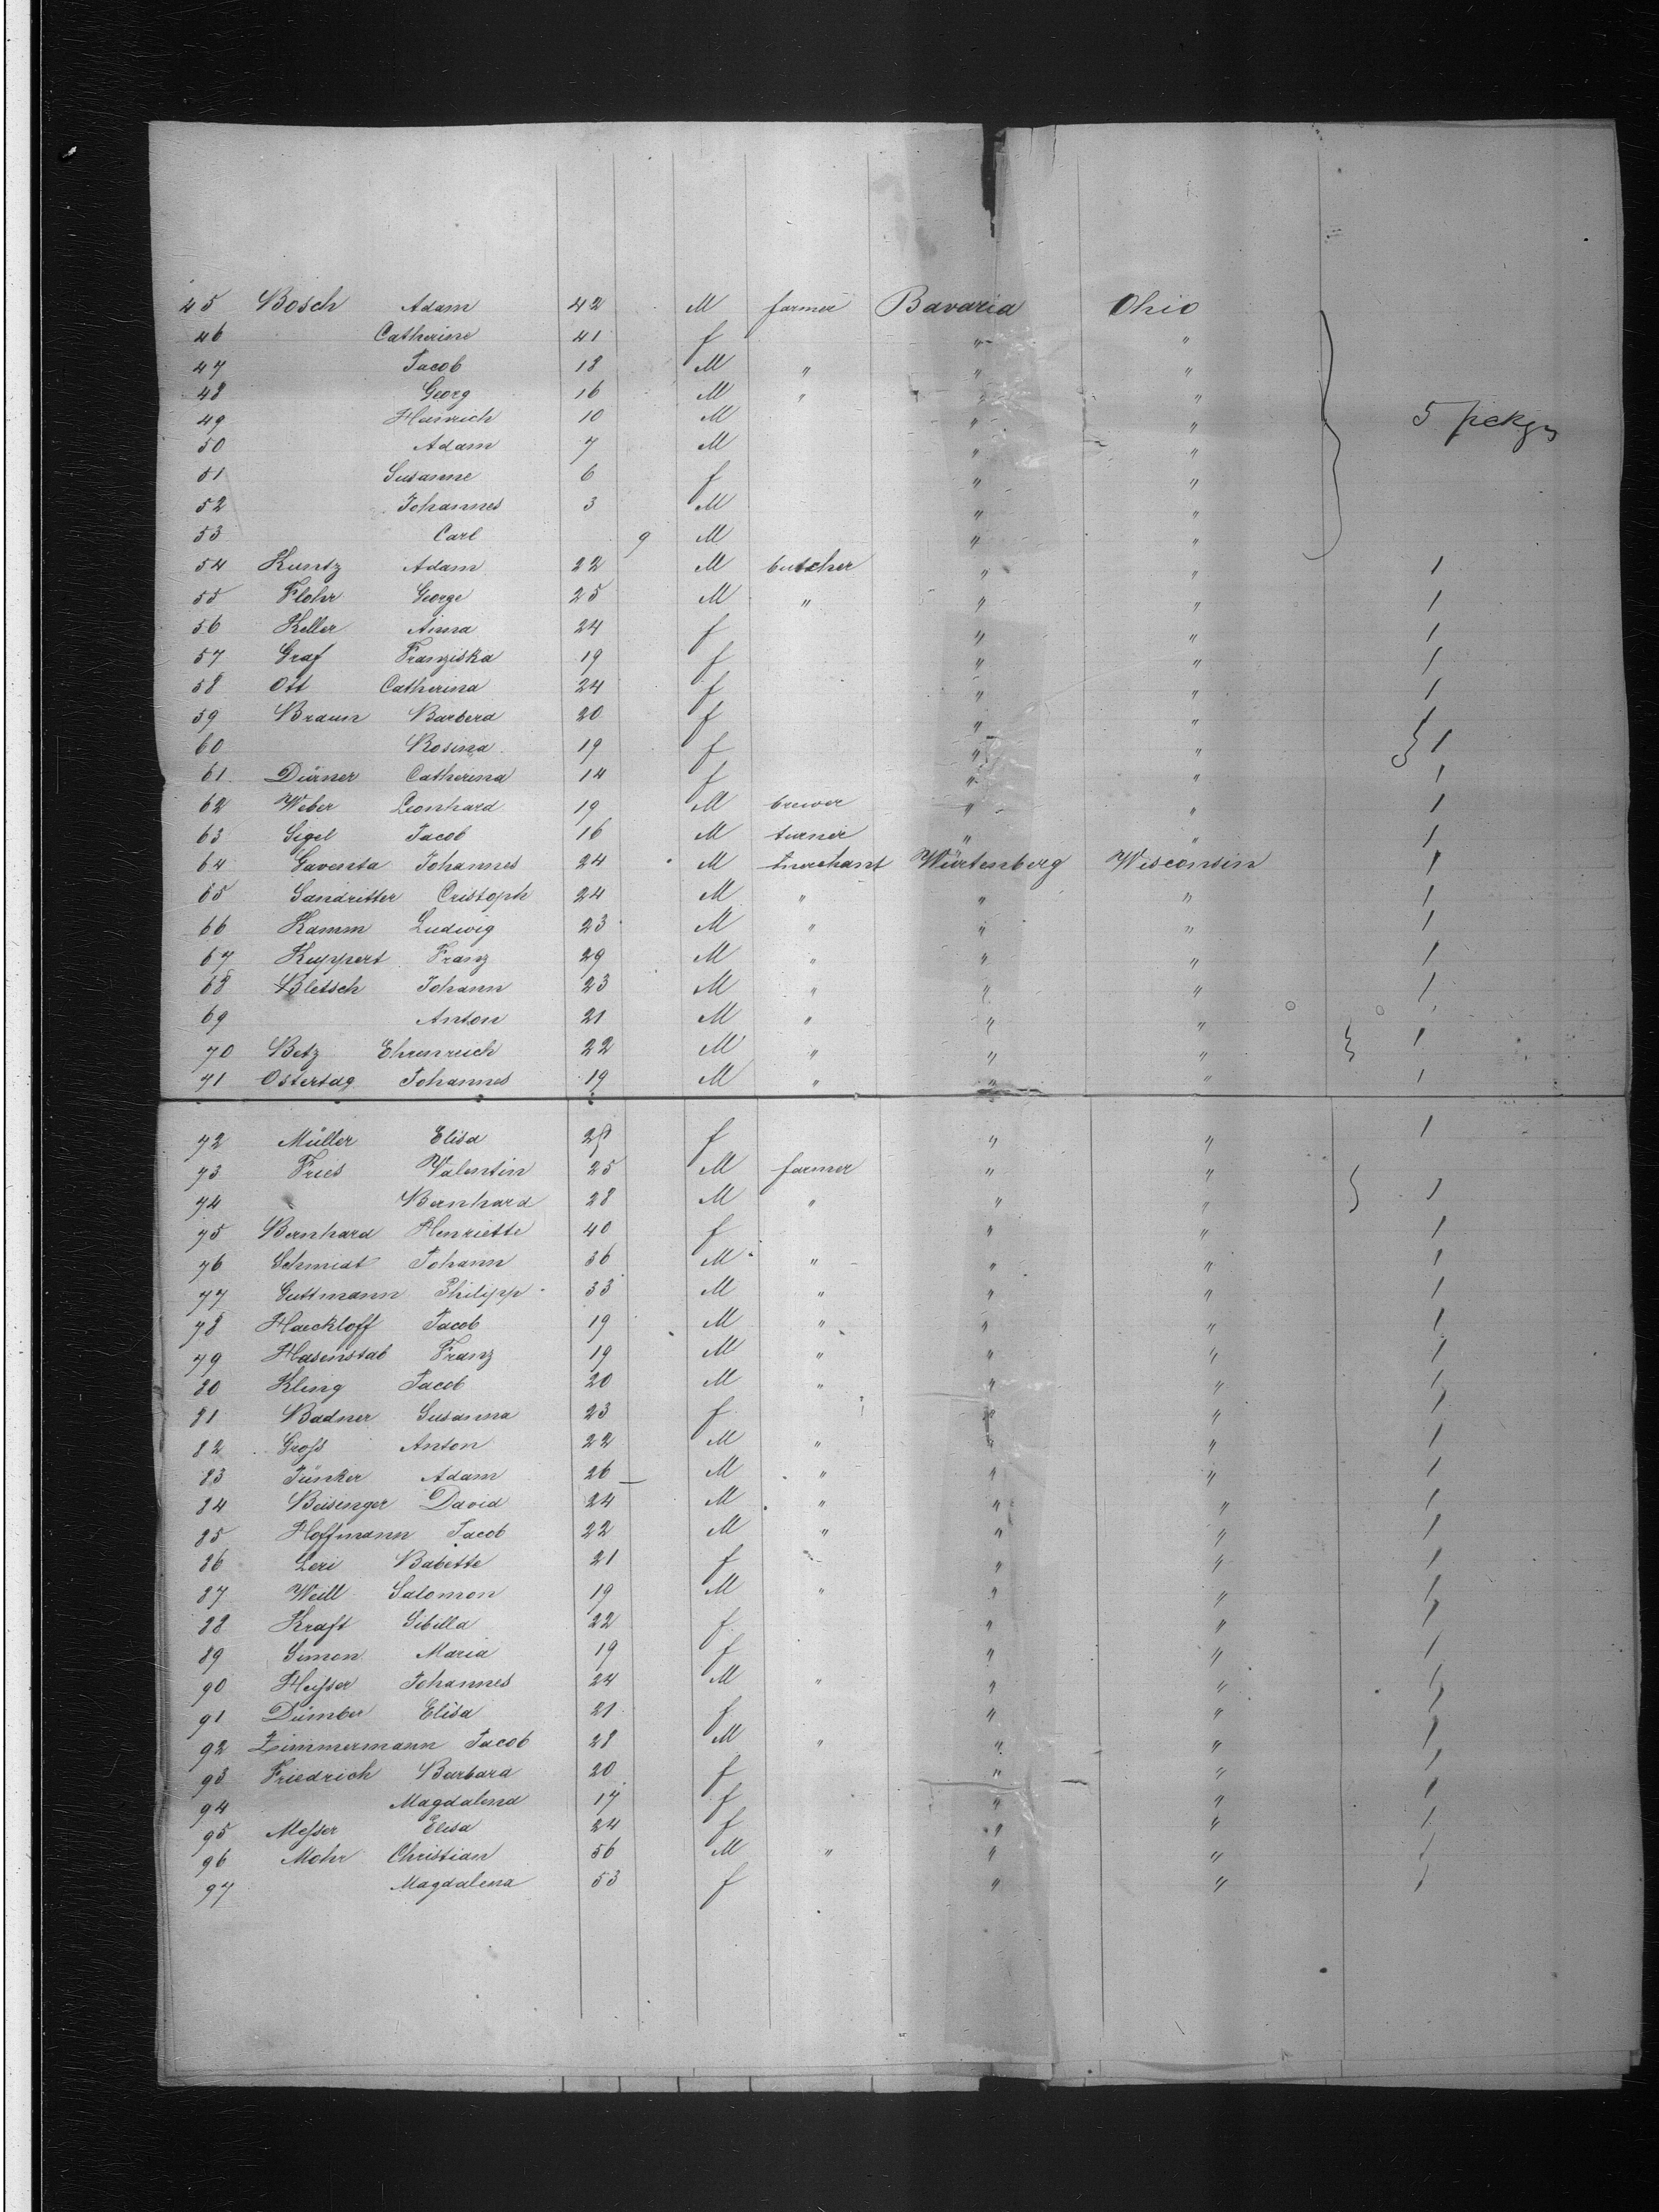 45 Bosch Adam 42 M farmer Bavaria Ohio
46 Catherine 41 f " "
47 Jacob 18 M " " "
48 Georg 16 M " " "
49 Heinrich 10 M " "
5 pckgs
50 Adam 7 M " "
51 Susanne 6 f " "
52 Johannes 3 M " "
53 Carl 9 M " "
54 Kuntz Adam 22 M butcher " " 1
55 Flohr George 25 M " " " 1
56 Keller Anna 24 f " " 1
57 Graf Franziska 19 f " " 1
58 Ott Catherina 24 f " " 1
59 Braun Barbera 20 f " "
60 Rosina 19 f " " } 1
61 Dürner Catherina 14 f " " 1
62 Weber Leonhard 19 M brewer " " 1
63 Sigel Jacob 16 M turner " " 1
64 Gaventa Johannes 24 M merchant Würtenberg Wisconsin 1
65 Sandritter Cristoph 24 M " " " 1
66 Kamm Ludwig 23 M " " " 1
67 Kuppert Franz 29 M " " " 1
68 Bletsch Johann 23 M " " " 1
69 Anton 21 M " " "
70 Betz Ehrenreich 22 M " " " } 1
71 Ostertag Johannes 19 M " " " 1
72 Müller Elisa f " " 1
73 Fries Valentin 25 M farmer " "
74 Bernhard 28 M " " " } 1
75 Bernhard Henriette 40 f " " 1
76 Schmidt Johann 36 M " " " 1
77 Guttmann Philipp 33 M " " " 1
78 Haeckloff Jacob 19 M " " " 1
79 Hasenstab Franz 19 M " " " 1
80 Kling Jacob 20 M " " " 1
81 Badner Susanna 23 f " " 1
82 Groß Anton 22 M " " " 1
83 Jünker Adam 26 M " " " 1
84 Beisinger David 24 M " " " 1
85 Hoffmann Jacob 22 M " " " 1
86 Leri Babette 21 f " " 1
87 Weill Salomon 19 M " " " 1
88 Kraft Sibilla 22 f " " 1
89 Simon Maria 19 f " " 1
90 Heßser Johannes 24 M " " " 1
91 Dümber Elisa 21 f " " 1
92 Zimmermann Jacob 28 M " " " 1
93 Friedrich Barbara 20 f " " 1
94 Magdalena 17 f " " 1
95 Meßer Elisa 24 f " " 1
96 Mohr Christian 56 M " " " 1
97 Magdalena 53 f " " 1